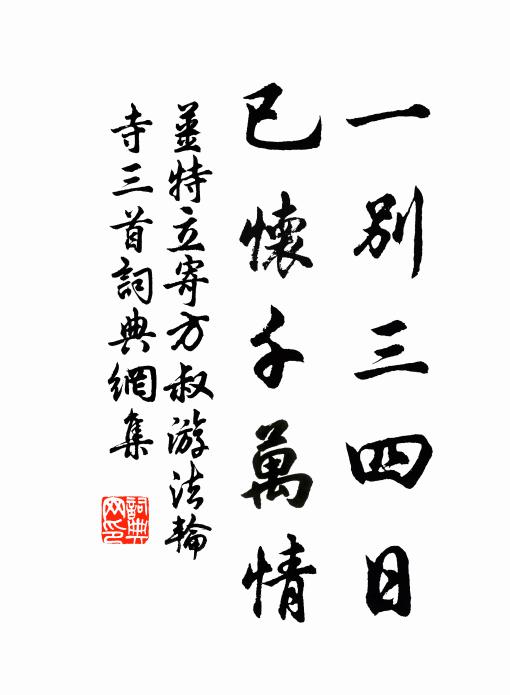 一別三四日
已懷千萬情
姜特立寄方叔游法輪
寺三首詞典網集
詞典網印